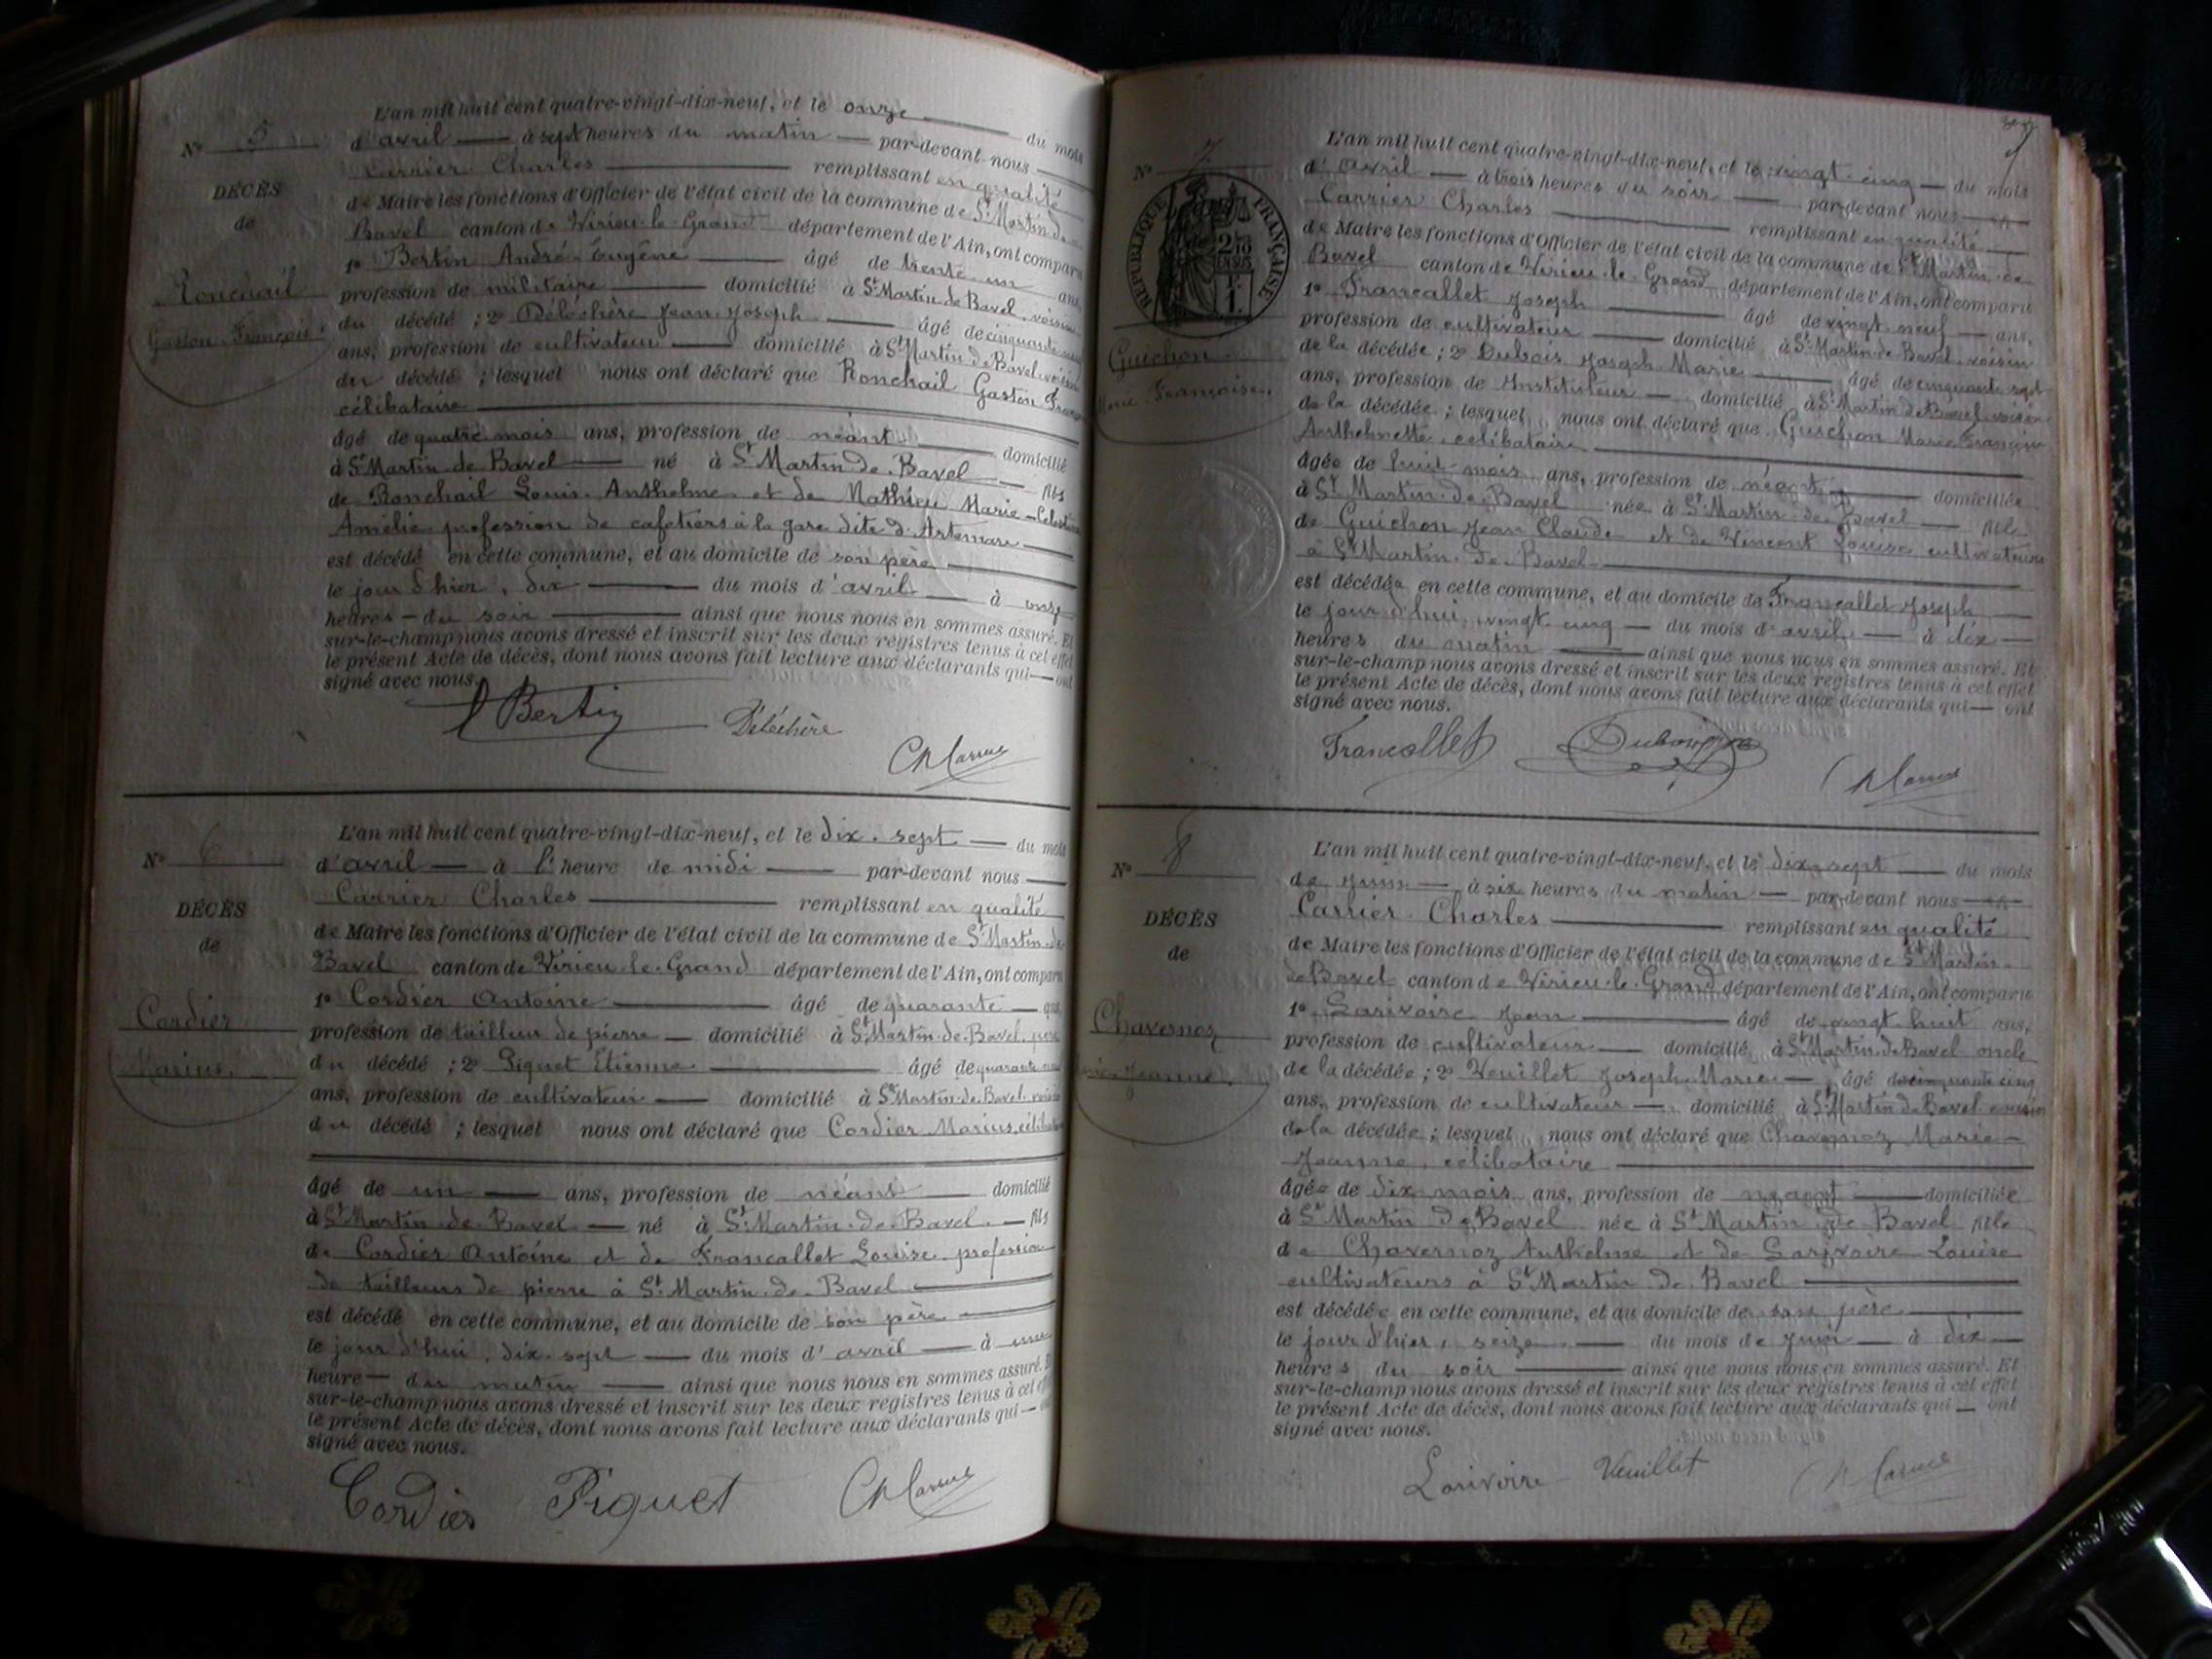 N° 5
DÉCÈS
de
Ronchail
Gaston François
L'an mil huit cent quatre-vingt-dix-neuf, et le onze du mois
d'avril à sept heures du matin par-devant nous
Carrier Charles remplissant en qualité
de Maire les fonctions d'Officier de l'état civil de la commune de St Martin de
Bavel canton de Virieu-le-Grand département de l'Ain, ont comparu
1° Bertin André Eugène âgé de trente un ans,
profession de militaire domicilié à St Martin de Bavel, voisin
du décédé ; 2° Déléchère Jean Joseph âgé de cinquante
ans, profession de cultivateur domicilié à St Martin de Bavel voisin
du décédé ; lesquel nous ont déclaré que Ronchail Gaston
célibataire
âgé de quatre mois ans, profession de néant domicilié
à St Martin de Bavel né à St Martin de Bavel fils
de Ronchail Louis Anthelme et de Mathieu Marie-Célestine
Amélie profession de cafetiers à la gare dite d'Artemare
est décédé en cette commune, et au domicile de son père
le jour d'hier, dix du mois d'avril à onze
heures du soir ainsi que nous nous en sommes assuré. Et
sur-le-champ nous avons dressé et inscrit sur les deux registres tenus à cet effet
le présent Acte de décès, dont nous avons fait lecture aux déclarants qui ont
signé avec nous.
Bertin Déléchère Ch Carrier
N° 6
DÉCÈS
de
Cordier
Marius.
L'an mil huit cent quatre-vingt-dix-neuf, et le dix-sept du mois
d'avril à l'heure de midi par-devant nous
Carrier Charles remplissant en qualité
de Maire les fonctions d'Officier de l'état civil de la commune de St Martin de
Bavel canton de Virieu-le-Grand département de l'Ain, ont comparu
1° Cordier Antoine âgé de quarante ans,
profession de tailleur de pierre domicilié à St Martin-de-Bavel, père
du décédé ; 2° Piquet Etienne âgé de quarante
ans, profession de cultivateur domicilié à St Martin-de-Bavel voisin
du décédé ; lesquel nous ont déclaré que Cordier Marius, célibataire
âgé de un ans, profession de néant domicilié
à St Martin de Bavel né à St Martin-de-Bavel fils
de Cordier Antoine et de Francallet Louise profession
de tailleurs de pierre à St Martin-de-Bavel
est décédé en cette commune, et au domicile de son père
le jour d'hui, dix-sept du mois d'avril à une
heure du matin ainsi que nous nous en sommes assuré. Et
sur-le-champ nous avons dressé et inscrit sur les deux registres tenus à cet effet
le présent Acte de décès, dont nous avons fait lecture aux déclarants qui
signé avec nous.
Cordier Piquet Ch Carrier
N° 7
RÉPUBLIQUE FRANÇAISE
Guichon
Marie Françoise.
L'an mil huit cent quatre-vingt-dix-neuf, et le vingt-cinq du mois
d'avril à trois heures du soir par-devant nous
Carrier Charles remplissant en qualité
de Maire les fonctions d'Officier de l'état civil de la commune de St Martin-de
Bavel canton de Virieu-le-Grand département de l'Ain, ont comparu
1° Francallet Joseph âgé de vingt-neuf ans,
profession de cultivateur domicilié à St Martin-de-Bavel voisin
de la décédée ; 2° Dubois Joseph Marie âgé de cinquante sept
ans, profession de Instituteur domicilié à St Martin de Bavel voisin
de la décédée ; lesquel nous ont déclaré que Guichon Marie Françoise
Anthelmette célibataire
âgée de huit mois ans, profession de néant domiciliée
à St Martin-de-Bavel née à St Martin de Bavel fille
de Guichon Jean Claude et de Vincent Louise cultivateurs
à St Martin-de-Bavel
est décédée en cette commune, et au domicile de Francallet Joseph
le jour d'hui, vingt cinq du mois d'avril à dix
heures du matin ainsi que nous nous en sommes assuré. Et
sur-le-champ nous avons dressé et inscrit sur les deux registres tenus à cet effet
le présent Acte de décès, dont nous avons fait lecture aux déclarants qui ont
signé avec nous.
Francallet Dubois Ch Carrier
N° 8
DÉCÈS
de
Chavernoz
Marie-Jeanne.
L'an mil huit cent quatre-vingt-dix-neuf, et le dix-sept du mois
de Juin à six heures du matin par-devant nous
Carrier Charles remplissant en qualité
de Maire les fonctions d'Officier de l'état civil de la commune de St Martin-
de Bavel canton de Virieu-le-Grand département de l'Ain, ont comparu
1° Larivoire Jean âgé de vingt-huit ans,
profession de cultivateur domicilié à St Martin de Bavel oncle
de la décédée ; 2° Veuillet Joseph Marie âgé de cinquante cinq
ans, profession de cultivateur domicilié à St Martin de Bavel
de la décédée ; lesquel nous ont déclaré que Chavernoz Marie-
Jeanne, célibataire
âgée de dix mois ans, profession de néant domiciliée
à St Martin de Bavel née à St Martin de Bavel fille
de Chavernoz Anthelme et de Larivoire Louise
cultivateurs à St Martin de Bavel
est décédée en cette commune, et au domicile de son père
le jour d'hier, seize du mois de Juin à dix
heures du soir ainsi que nous nous en sommes assuré. Et
sur-le-champ nous avons dressé et inscrit sur les deux registres tenus à cet effet
le présent Acte de décès, dont nous avons fait lecture aux déclarants qui ont
signé avec nous.
Larivoire Veuillet Ch Carrier